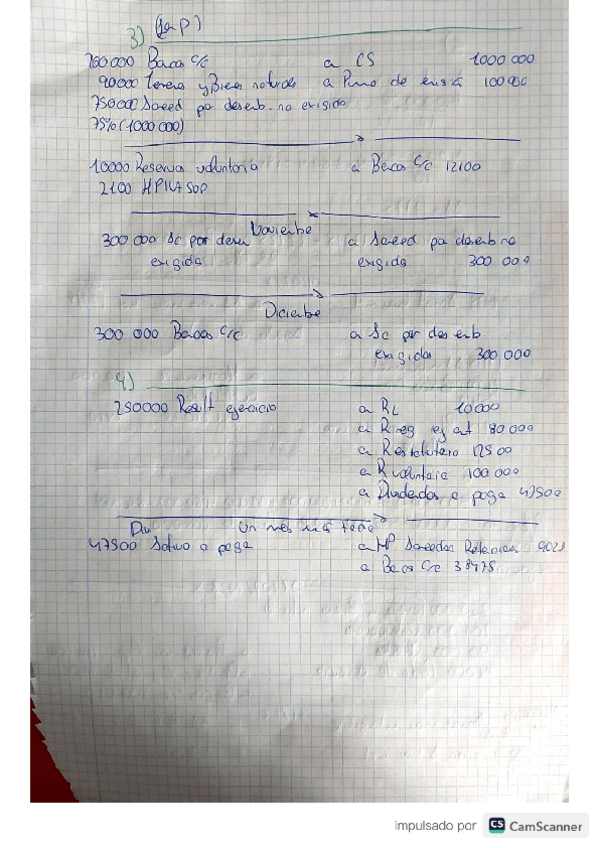 3) (1ª p)
260000 Bacos c/c a CS 1000 000
90000 Terreno y Bienes naturales a Prima de emisió 100 000
750000 Socced por desemb. no exigido
75% (1000 000)
10000 Reserva voluntaria a Bacos c/c 12100
2100 HP IVA SOP
Noviembre
300 000 Sc por desem a Socced por desemb no
exigido exigido 300 000
Diciembre
300 000 Bacos c/c a Sc por desemb.
exigidos 300 000
4)
250000 Result ejercicio a RL 10000
a R neg ej ant 80 000
a R estatutaria 12500
a R voluntaria 100 000
a Dividendos a pagar 47500
Un mes más tarde
47500 a pagar a HP Acreedor Retencion 9025
a Bacos c/c 38475
impulsado por CS CamScanner